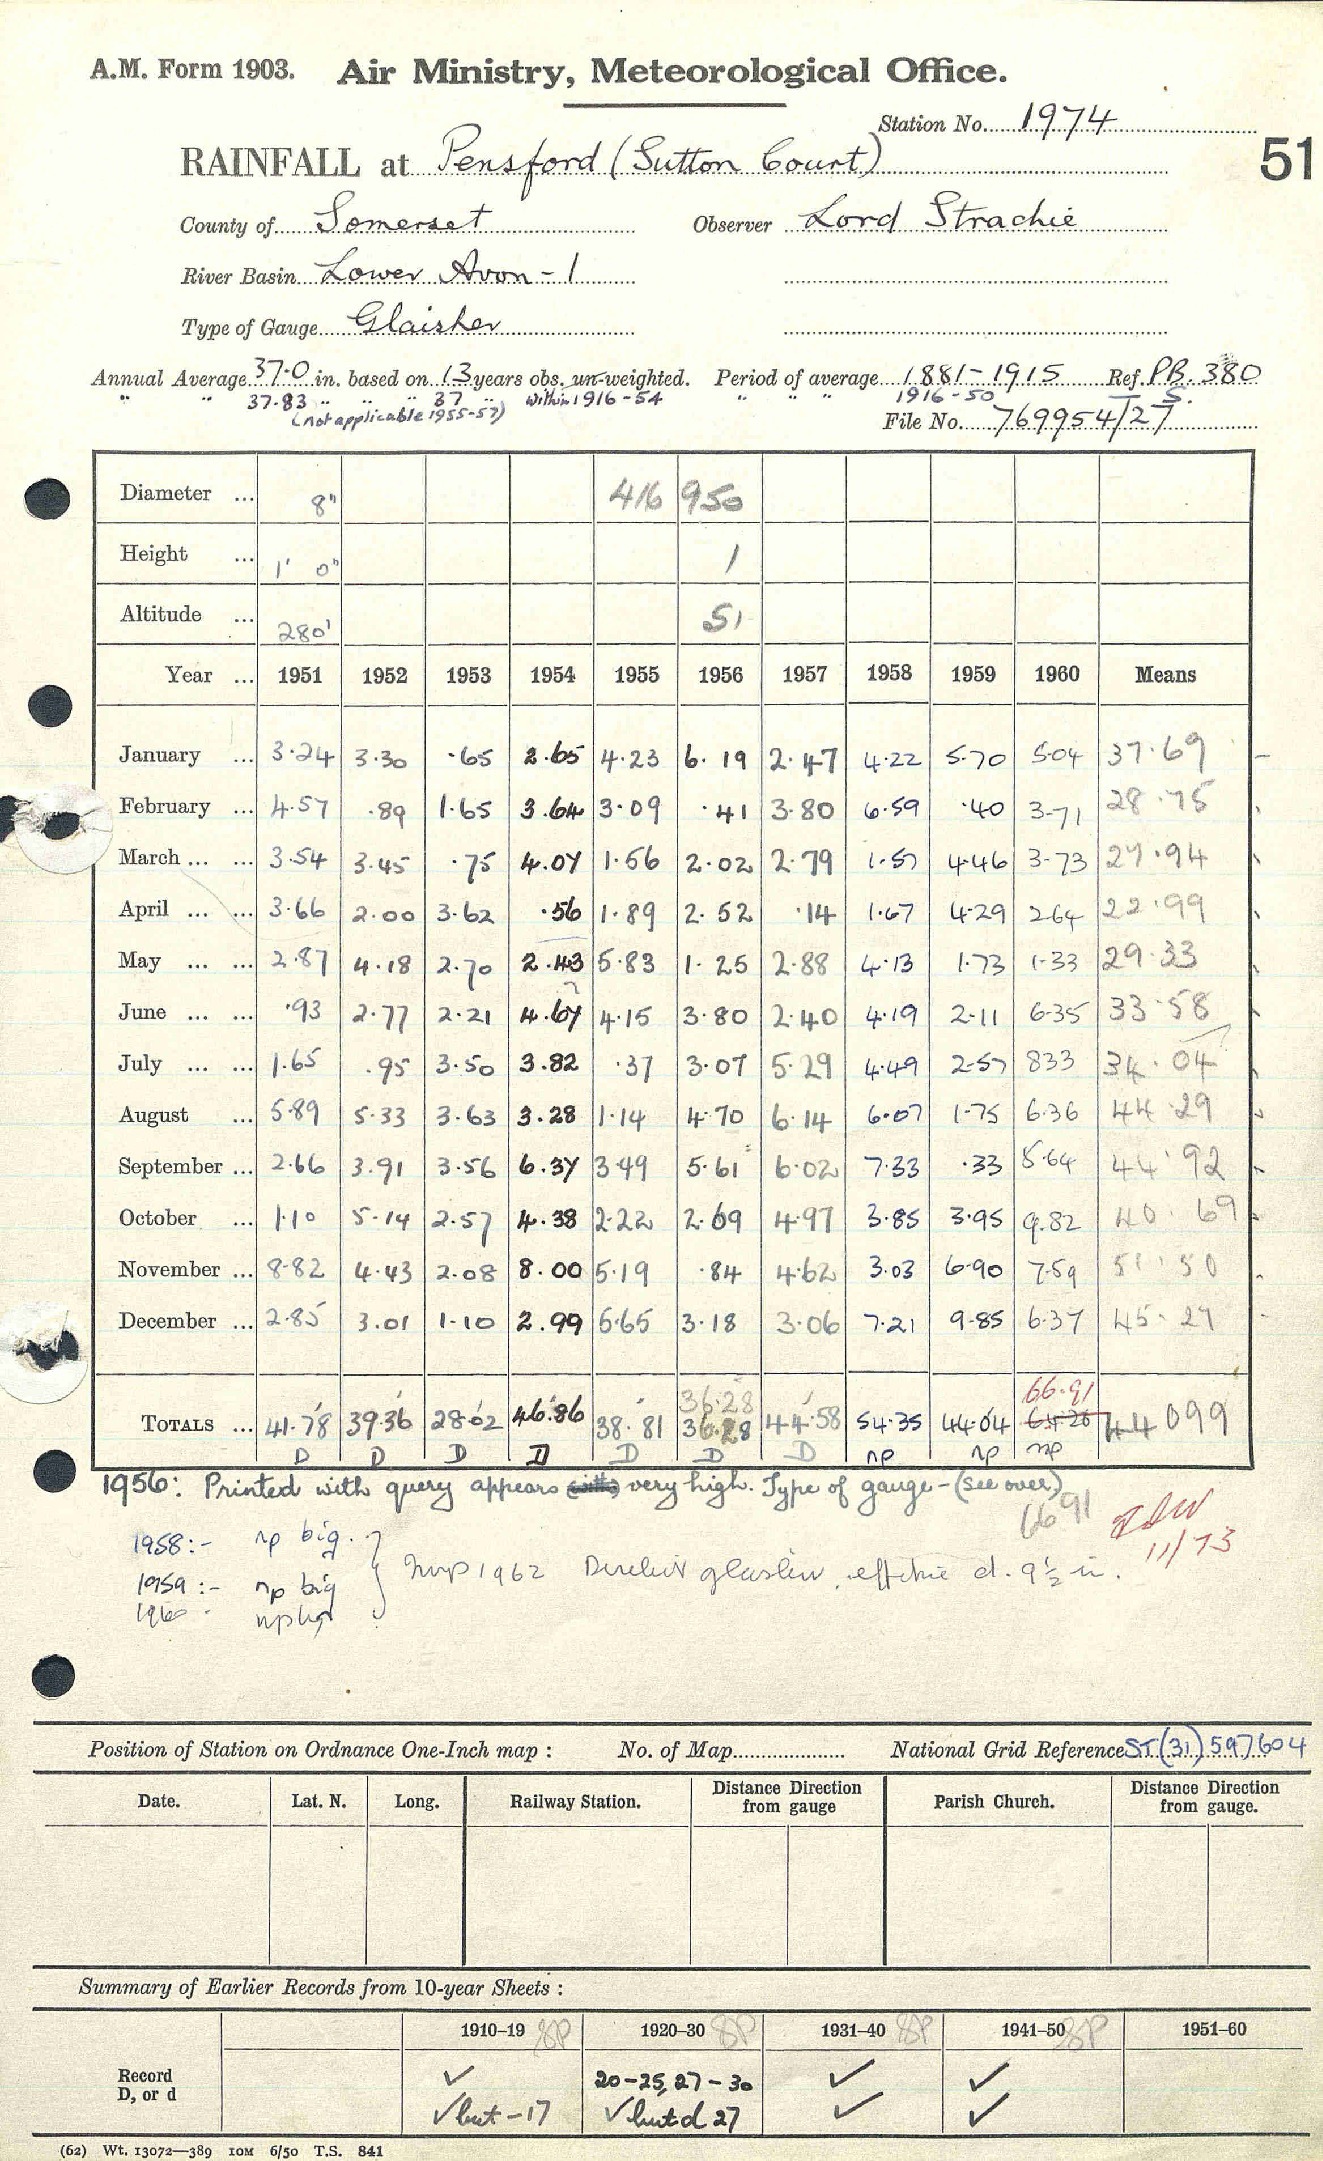 A.M. Form 1903. Air Ministry, Meteorological Office.
Station No. 1974
RAINFALL at Pensford (Sutton Court)
51
County of Somerset Observer Lord Strachie
River Basin Lower Avon - 1
Type of Gauge Glaisher
Annual Average 37.0 in. based on 13 years obs. un-weighted. Period of average 1881-1915 Ref. P.B. 380
" " 37.83 " " " 37 " within 1916-54 " " " 1916-50 S.
(not applicable 1955-57) File No. 769954/27
Diameter ... 8" 416 950
Height ... 1' 0" 1
Altitude ... 280' 51
Year ... 1951 1952 1953 1954 1955 1956 1957 1958 1959 1960 Means
January ... 3.24 3.30 .65 2.65 4.23 6.19 2.47 4.22 5.70 5.04 37.69
February ... 4.57 .89 1.65 3.64 3.09 .41 3.80 6.59 .40 3.71 28.75
March ... ... 3.54 3.45 .75 4.07 1.56 2.02 2.79 1.57 4.46 3.73 27.94
April ... ... 3.66 2.00 3.62 .56 1.89 2.52 .14 1.67 4.29 2.64 22.99
May ... ... 2.87 4.18 2.70 2.43 5.83 1.25 2.88 4.13 1.73 1.33 29.33
June ... ... .93 2.77 2.21 4.67 4.15 3.80 2.40 4.19 2.11 6.35 33.58
July ... ... 1.65 .95 3.50 3.82 .37 3.07 5.29 4.49 2.57 833 34.04
August ... 5.89 5.33 3.63 3.28 1.14 4.70 6.14 6.07 1.75 6.36 44.29
September ... 2.66 3.91 3.56 6.37 3.49 5.61 6.02 7.33 .33 5.64 44.92
October ... 1.10 5.14 2.57 4.38 2.22 2.69 4.97 3.85 3.95 9.82 40.69
November ... 8.82 4.43 2.08 8.00 5.19 .84 4.62 3.03 6.90 7.59 51.50
December ... 2.85 3.01 1.10 2.99 5.65 3.18 3.06 7.21 9.85 6.37 45.27
36.28 66.91
TOTALS ... 41.78 39.36 28.02 46.86 38.81 36.28 44.58 54.35 44.04 44099
D D D D D D D np np np
1956: Printed with query appears very high. Type of gauge - (see over)
6691
11/73
1958:- np big.
1959:- np big
1960
1962 effective d. 9½ in.
Position of Station on Ordnance One-Inch map : No. of Map National Grid Reference ST (31) 597604
Date. Lat. N. Long. Railway Station. Distance Direction from gauge Parish Church. Distance Direction from gauge.
Summary of Earlier Records from 10-year Sheets :
1910-19 8P 1920-30 8P 1931-40 8P 1941-50 8P 1951-60
Record ✓ 20-25, 27-30 ✓ ✓
D, or d ✓ but -17 ✓ but d 27 ✓ ✓
(62) Wt. 13072—389 10M 6/50 T.S. 841